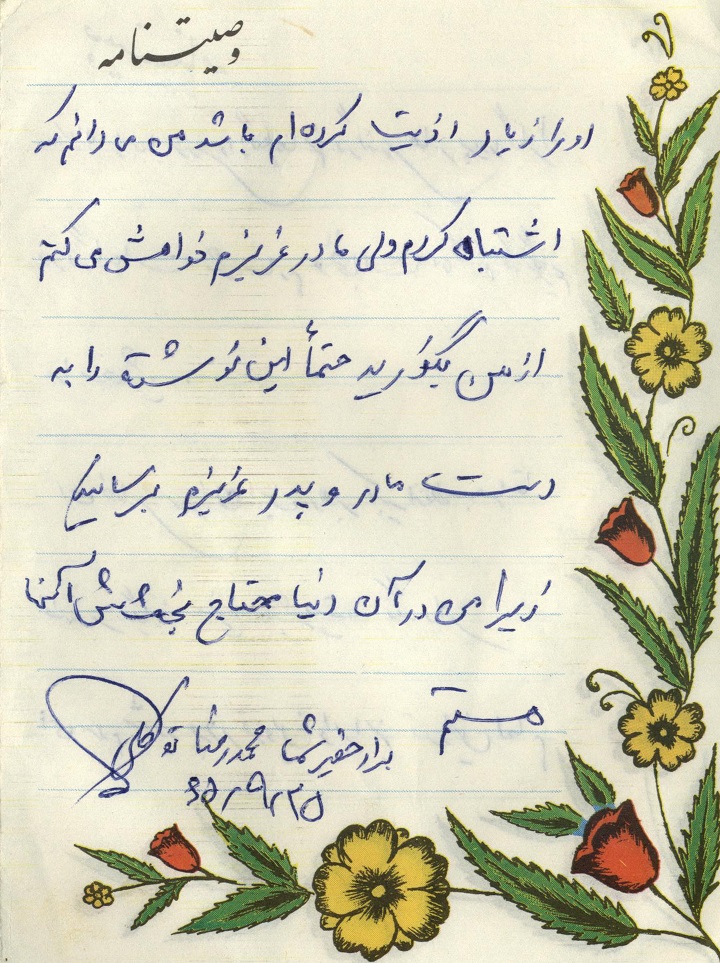 وصیتنامه
او را زیاد اذیت کرده ام باشد من می دانم که
اشتباه کردم ولی مادر عزیزم خواهش می کنم
از من بگذرید حتماً این نوشته را به
دست مادر و پدر عزیزم برسانید
زیرا من در آن دنیا محتاج بخشش آنها
هستم
برادر حقیر شما محمدرضا